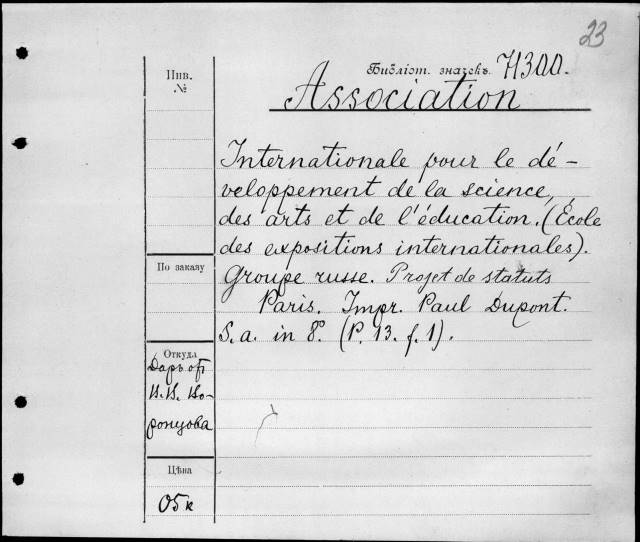 23
Библіот. значекъ 71300.
Association
Internationale pour le dé-
veloppement de la science,
des arts et de l'éducation. (École
des expositions internationales).
Groupe russe. Projet de statuts
Paris. Impr. Paul Dupont.
S. a. in 8º. (P. 13. f. 1).
Инв.
№
По заказу
Откуда
Даръ отъ
В. В. Во-
ронцова
Цѣна
05 к